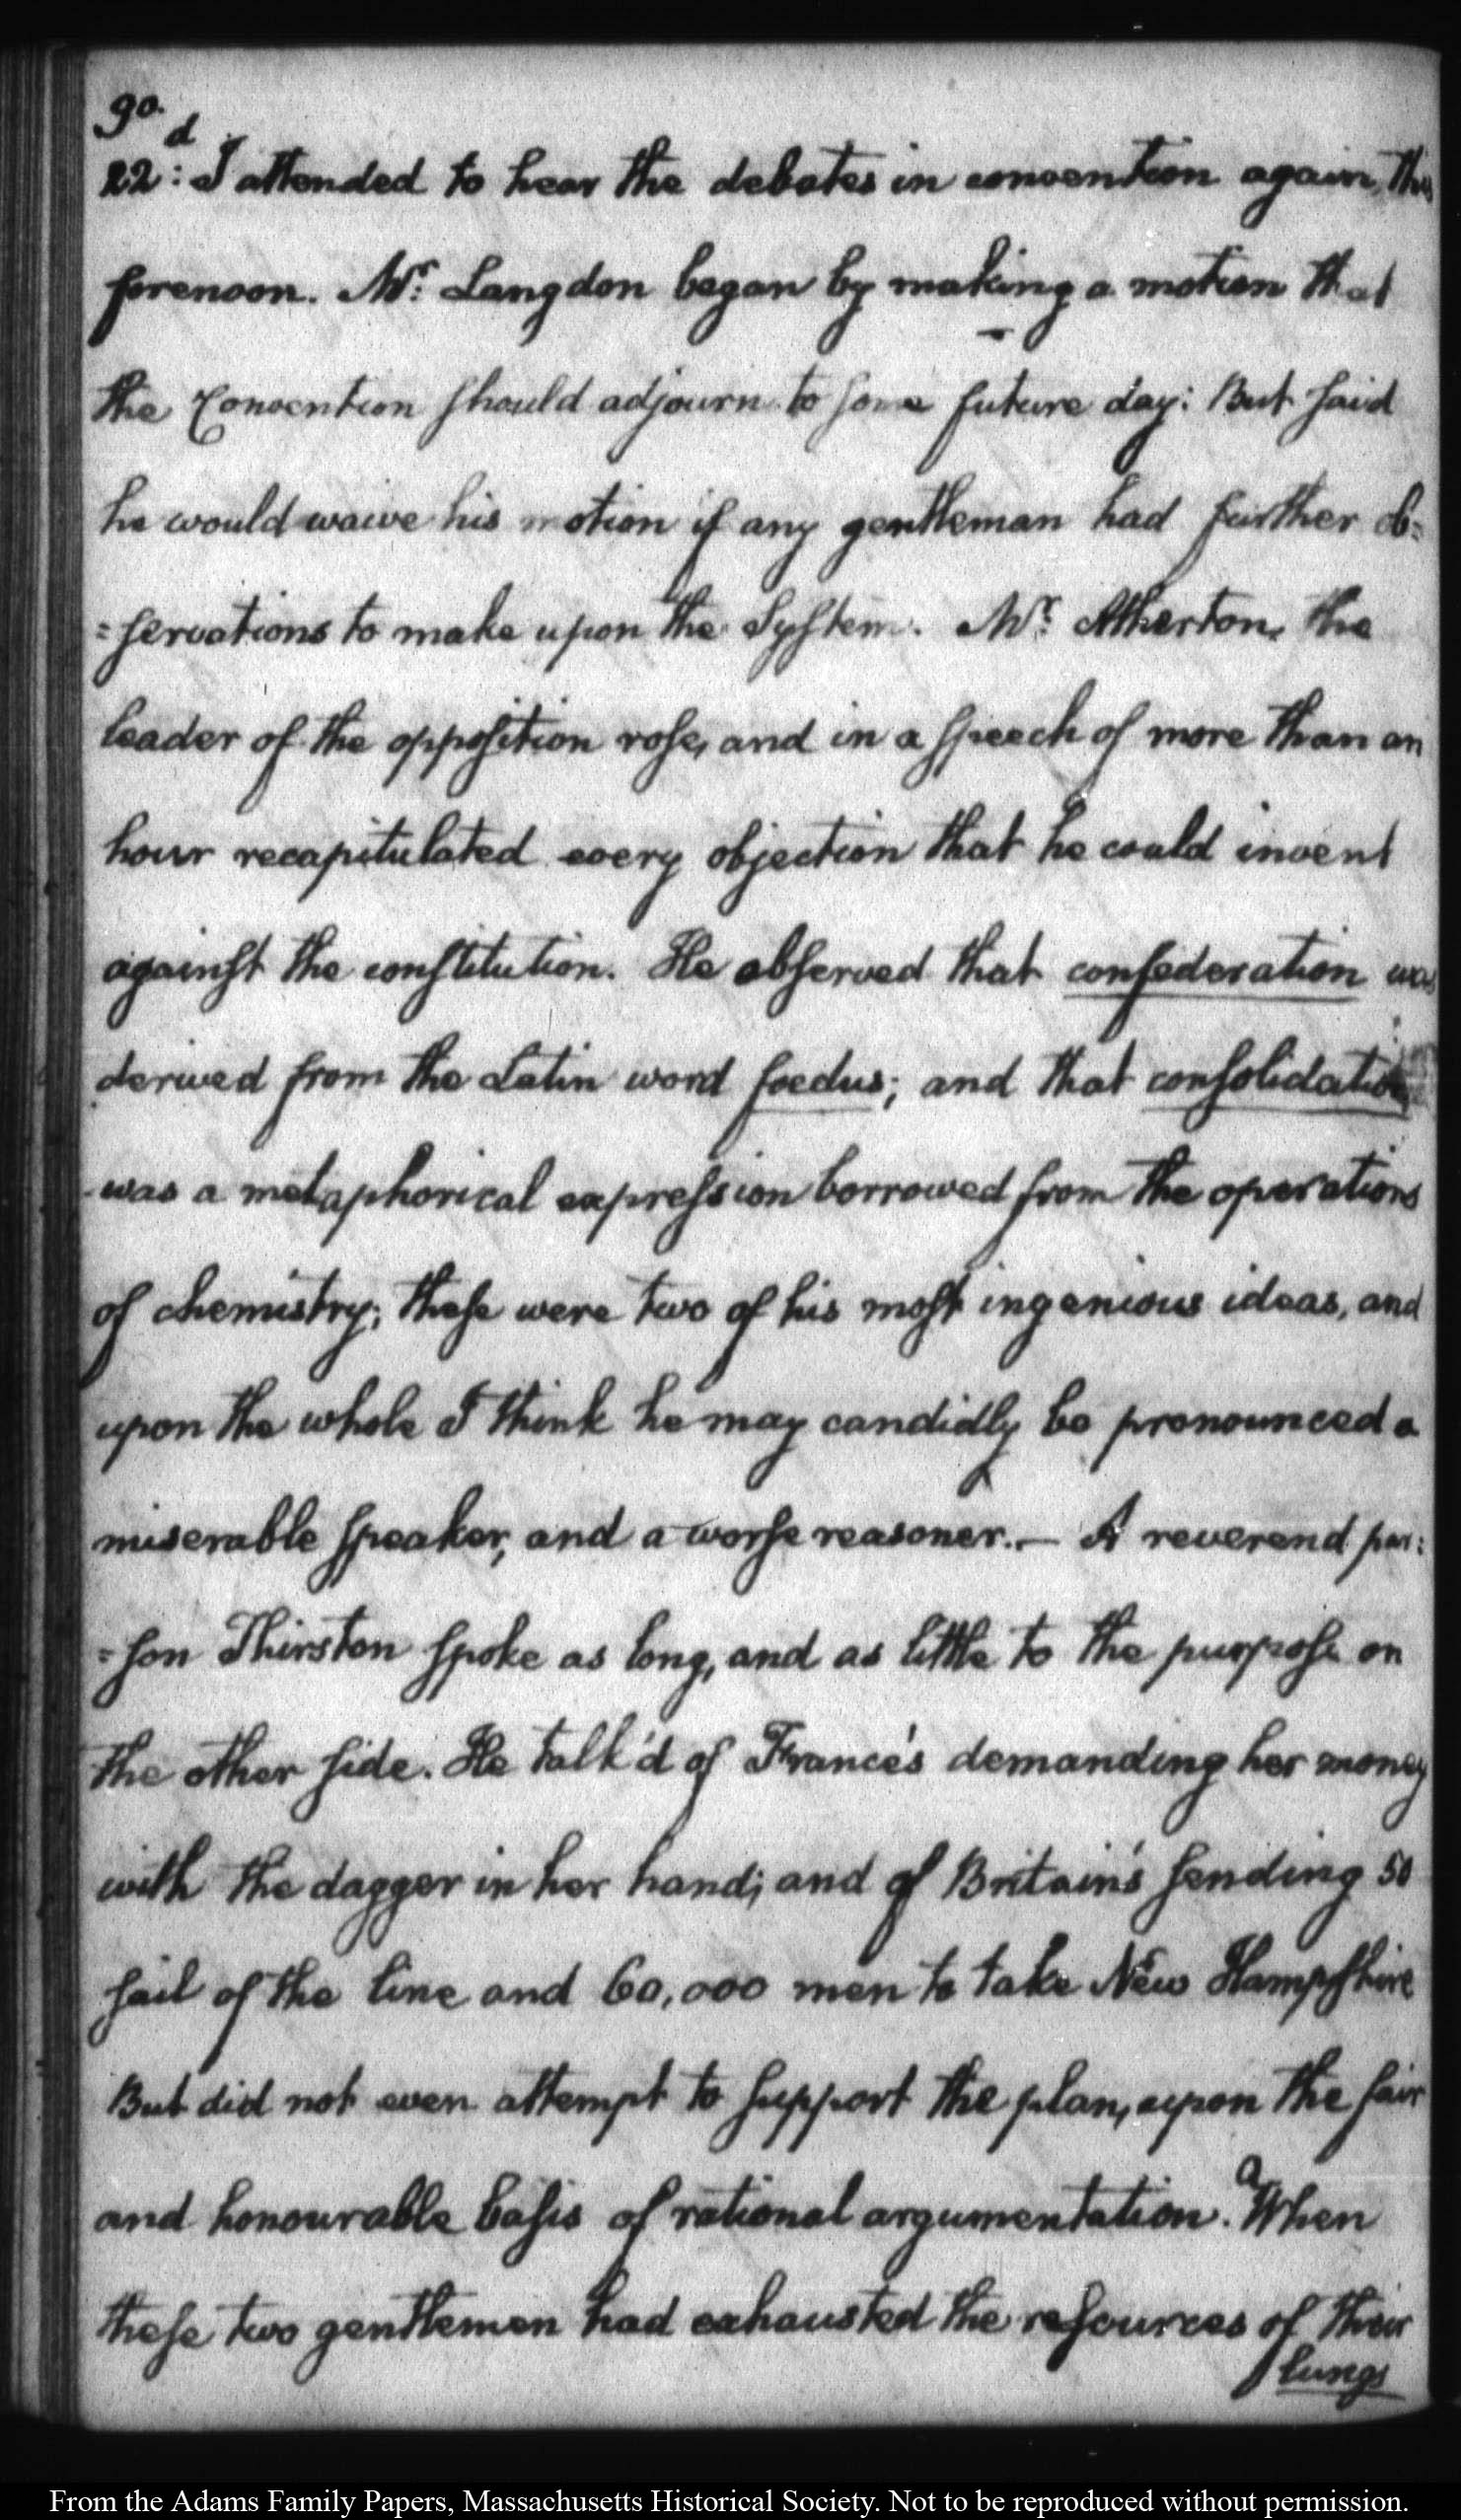 90.
22.d I attended to hear the debates in convention again, this
forenoon. Mr: Langdon began by making a motion that
the Convention should adjourn to some future day: But said
he would waive his motion if any gentleman had further ob=
=servations to make upon the System. Mr: Atherton, the
leader of the opposition rose, and in a speech of more than an
hour recapitulated every objection that he could invent
against the constitution. He observed that confederation was
derived from the Latin word foedus; and that consolidation
was a metaphorical expression borrowed from the operations
of chemistry; these were two of his most ingenious ideas, and
upon the whole I think he may candidly be pronounced a
miserable speaker, and a worse reasoner.— A reverend par=
=son Thirston spoke as long, and as little to the purpose on
the other side. He talk'd of France's demanding her money
with the dagger in her hand; and of Britain's sending 50
sail of the line and 60,000 men to take New Hampshire
But did not even attempt to support the plan, upon the fair
and honourable basis of rational argumentation. a When
these two gentlemen had exhausted the resources of their
lungs
From the Adams Family Papers, Massachusetts Historical Society. Not to be reproduced without permission.